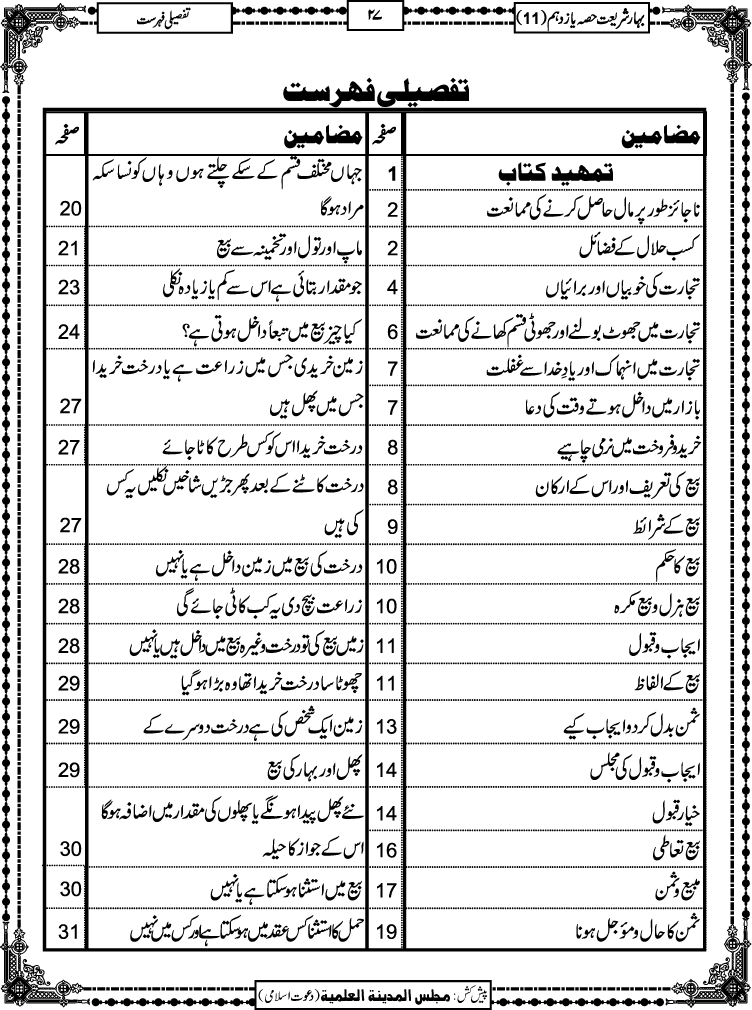 بہار شریعت حصہ یازدہم (11)
۲۷
تفصیلی فہرست
تفصیلی فہرست
مضامین صفحہ
تمهید کتاب 1
ناجائز طور پر مال حاصل کرنے کی ممانعت 2
کسب حلال کے فضائل 2
تجارت کی خوبیاں اور برائیاں 4
تجارت میں جھوٹ بولنے اور جھوٹی قسم کھانے کی ممانعت 6
تجارت میں انہماک اور یادِ خدا سے غفلت 7
بازار میں داخل ہوتے وقت کی دعا 7
خرید و فروخت میں نرمی چاہیے 8
بیع کی تعریف اور اس کے ارکان 8
بیع کے شرائط 9
بیع کا حکم 10
بیع ہزل و بیع مکرہ 10
ایجاب و قبول 11
بیع کے الفاظ 11
ثمن بدل کر دو ایجاب کیے 13
ایجاب و قبول کی مجلس 14
خیار قبول 14
بیع تعاطی 16
مبیع و ثمن 17
ثمن کا حال و مؤجل ہونا 19
مضامین صفحہ
جہاں مختلف قسم کے سکے چلتے ہوں وہاں کونسا سکہ
مراد ہوگا 20
ماپ اور تول اور تخمینہ سے بیع 21
جو مقدار بتائی ہے اس سے کم یا زیادہ نکلی 23
کیا چیز بیع میں تبعاً داخل ہوتی ہے؟ 24
زمین خریدی جس میں زراعت ہے یا درخت خریدا
جس میں پھل ہیں 27
درخت خریدا اس کو کس طرح کاٹا جائے 27
درخت کاٹنے کے بعد پھر جڑیں شاخیں نکلیں یہ کس
کی ہیں 27
درخت کی بیع میں زمین داخل ہے یا نہیں 28
زراعت بیچ دی یہ کب کاٹی جائے گی 28
زمیں بیع کی تو درخت وغیرہ بیع میں داخل ہیں یا نہیں 28
چھوٹا سا درخت خریدا تھا وہ بڑا ہوگیا 29
زمین ایک شخص کی ہے درخت دوسرے کے 29
پھل اور بہار کی بیع 29
نئے پھل پیدا ہونگے یا پھلوں کی مقدار میں اضافہ ہوگا
اس کے جواز کا حیلہ 30
بیع میں استثنا ہوسکتا ہے یا نہیں 30
حمل کا استثنا کس عقد میں ہوسکتا ہے اور کس میں نہیں 31
پیش کش: مجلس المدینة العلمیة (دعوت اسلامی)